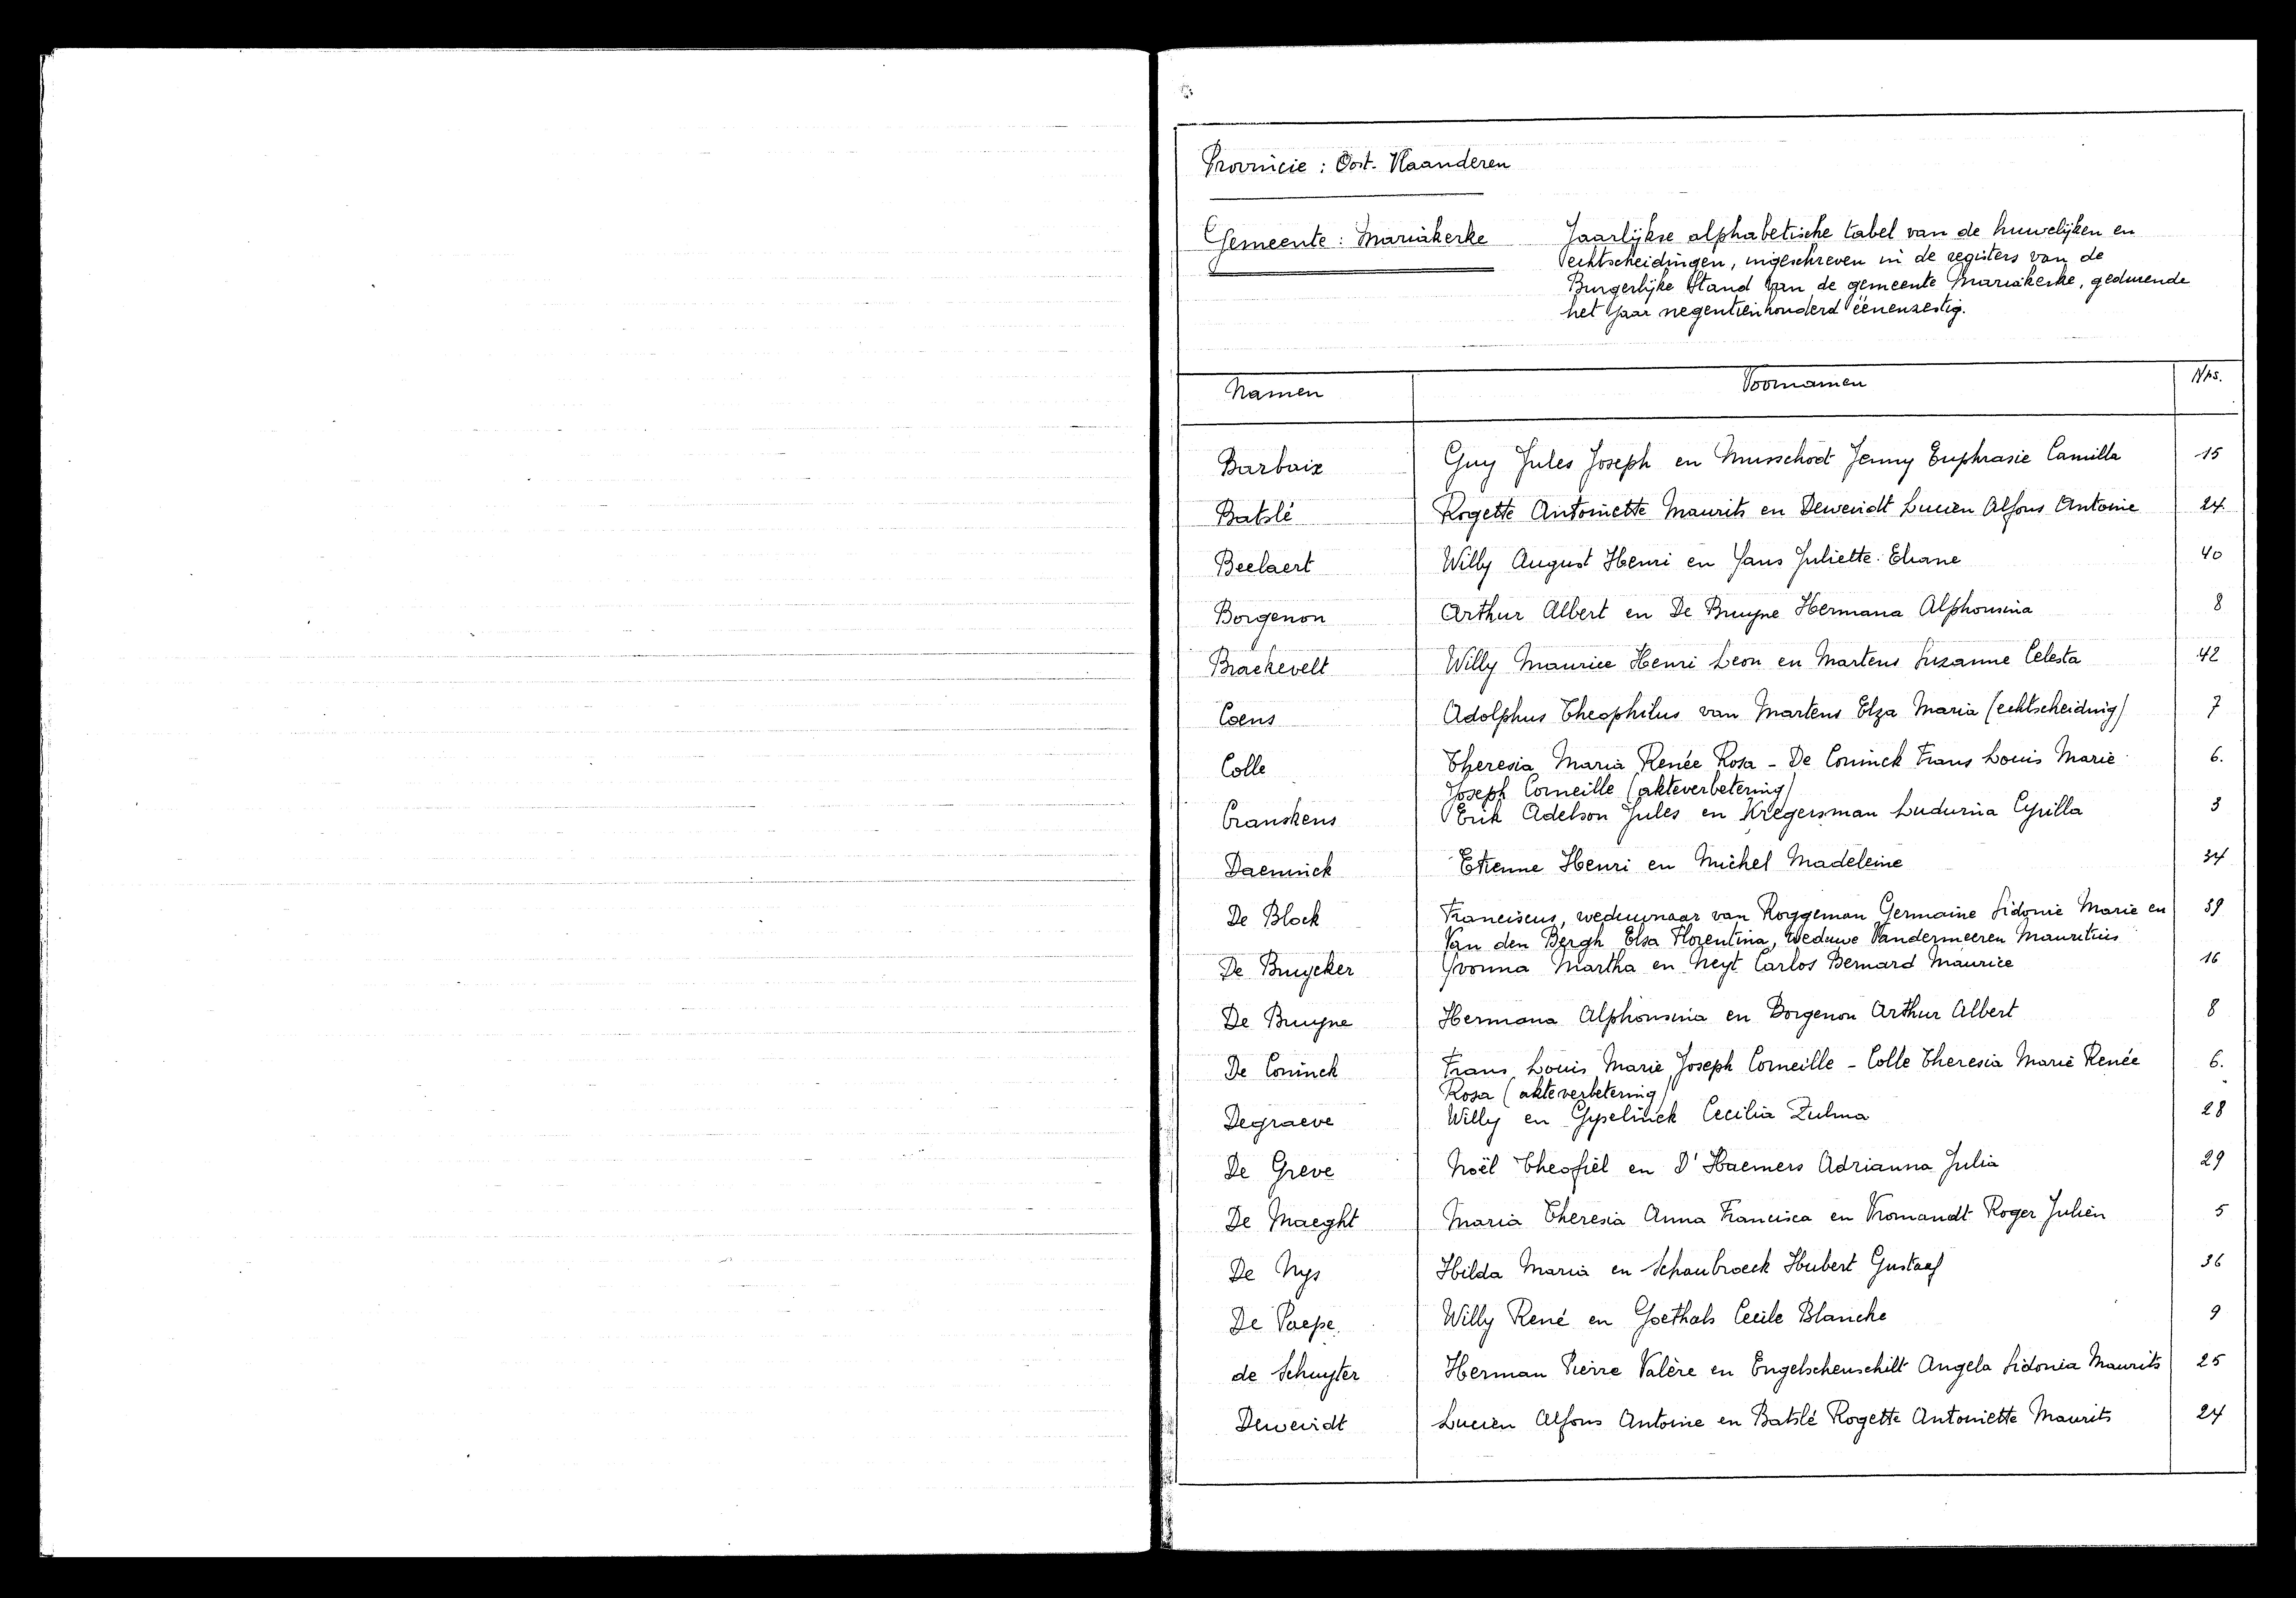 Provincie : Oost-Vlaanderen
Gemeente : Mariakerke
Jaarlijkse alphabetische tabel van de huwelijken en
echtscheidingen, ingeschreven in de registers van de
Burgerlijke Stand van de gemeente Mariakerke, gedurende
het jaar negentienhonderd éénenzestig.
Namen Voornamen Nrs.
Barbaix Guy Jules Joseph en Musschoot Jenny Euphrasie Camilla 15
Batslé Rogette Antoinette Maurits en Deweirdt Lucien Alfons Antoine 24
Beelaert Willy August Henri en Jans Juliette Eliane 40
Borgenon Arthur Albert en De Bruyne Hermana Alphonsina 8
Braekevelt Willy Maurice Henri Leon en Martens Suzanne Celesta 42
Coens Adolphus Theophilus van Martens Elza Maria (echtscheiding) 7
Colle Theresia Maria Renée Rosa - De Coninck Frans Louis Marie 6.
Joseph Corneille (akteverbetering)
Cranskens Erik Adelson Jules en Kregersman Ludwina Cyrilla 3
Daeninck Etienne Henri en Michel Madeleine 34
De Block Franciscus, weduwnaar van Roggeman Germaine Sidonie Marie en 39
Van den Bergh Elsa Florentina, weduwe Vandermeeren Mauritius
De Bruycker Yvonna Martha en Neyt Carlos Bernard Maurice 16
De Bruyne Hermana Alphonsina en Borgenon Arthur Albert 8
De Coninck Frans Louis Marie Joseph Corneille - Colle Theresia Marie Renée 6.
Rosa (akteverbetering)
Degraeve Willy en Gyselinck Cecilia Zulma 28
De Greve Noël Theofiel en D'Haemers Adrianna Julia 29
De Maeght Maria Theresia Anna Francisca en Vromandt Roger Julien 5
De Nys Hilda Maria en Schaubroeck Hubert Gustaaf 36
De Paepe Willy René en Goethals Cecile Blanche 9
de Schuyter Herman Pierre Valère en Engelschenschilt Angela Sidonia Maurits 25
Deweirdt Lucien Alfons Antoine en Batslé Rogette Antoniette Maurits 24